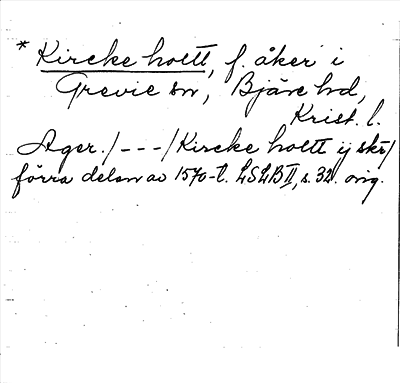 * Kircke holtt, f. åker i
Grevie sn, Bjäre hd,
Krist. l.
Ager. / - - - / Kircke holtt ij skr /
förra delen av 1570-t. LSLB II, s. 32. orig.